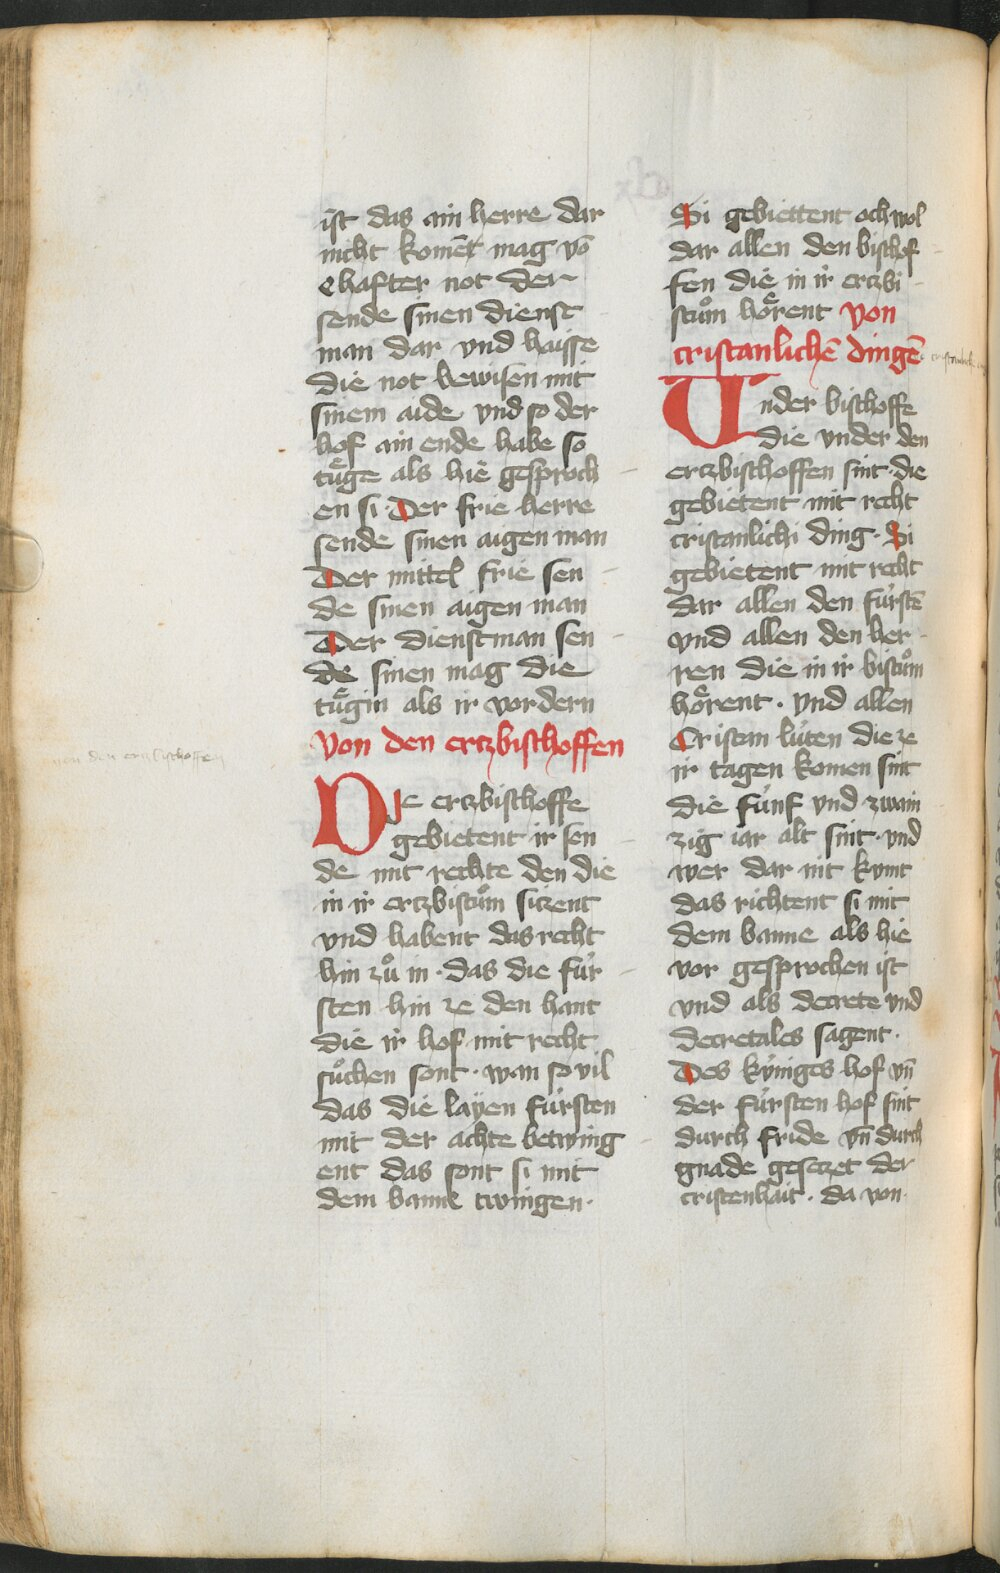 ist das ain herre dar
nicht komēt mag vō
ehafter not der
sende sinen dienst
man dar vnd haisse
die not bewisen mit
sinem aide vnd so der
hof ain ende habe so
tuͤge als hie gesproch
en si · Der frie herre
sende sinen aigen man
Der mittel frie sen
de sinen aigen man
Der dienstman sen
de sinen mag die
tuͤgin als ir vordern
von den ertzbischoffen
DIe ertzbischoffe
gebietent ir sen
de mit rechte den die
in ir ertzbistuͦm sitzent
vnd habent das recht
hin zuͦ in · das die für
sten hin ze den hant
die ir hof mit recht
suͦchen sont · wan so vil
das die layen fürsten
mit der achte betwing
ent das sont si mit
dem banne twingen ·
Si gebiettent och wol
dar allen den bischof
fen die in ir ertzbi
stuͦm hoͤrent von
cristanlichē dingē
Vnder bischoffe
die vnder den
ertzbischoffen sint · die
gebietent mit recht
cristanlichi ding · Si
gebietent mit recht
dar allen den fürstē
vnd allen den her
ren die in ir bistuͦm
hoͤrent · vnd allen
Cristan lüten die ze
ir tagen komen sint
die fünf vnd zwain
zig iar alt sint · vnd
wer dar nit kvmt
das richtent si mit
dem banne als hie
vor gesprochen ist
vnd als decrete vnd
decretales sagent ·
Des kv́niges hof vn̄
der fürsten hof sint
durch fride vn̄ durch
gnade gesetzet der
cristenhait · da von
von den ertzbischoffen